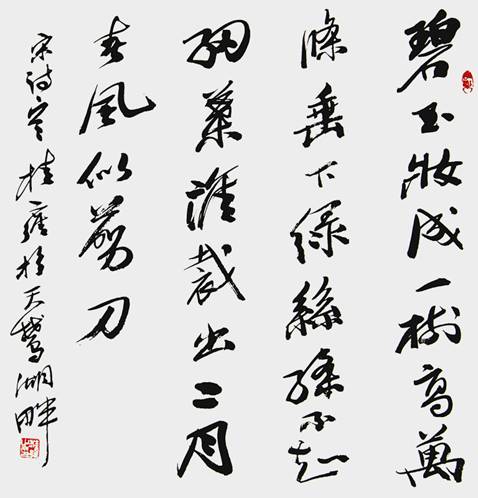 碧玉妝成一樹高萬
條垂下綠絲絛不知
細葉誰裁出二月
春風似剪刀
桂雍於天鵝湖畔